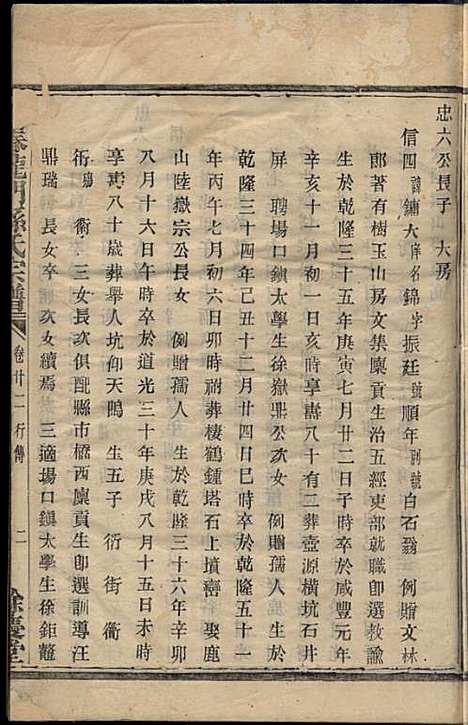 忠六公長子 大房
信四諱鏞大庠名錦字振廷號順年別號白石翁 例贈文林
郎著有樹玉山房文集廪貢生治五經吏部就職即選教諭
生於乾隆三十五年庚寅七月廿二日子時卒於咸豐元年
辛亥十一月初一日亥時享壽八十有二葬壺源橫坑石井
屏 聘場口鎮太學生徐嶽鼎公次女 例贈孺人 生於
乾隆三十四年己丑十二月廿四日巳時卒於乾隆五十一
年丙午七月初六日卯時祔葬棲鶴鍾塔石上墳 娶鹿
山陸嶽宗公長女 例贈孺人 生於乾隆三十六年辛卯
八月十六日午時卒於道光三十年庚戌八月十五日未時
享壽八十歲葬舉人坑仰天 生五子 衍 街 衝
術 衛 三女長次俱配縣市橋西廪貢生即選訓導汪
鼎瑞 長女卒 次女續焉 三適場口鎮太學生徐鉅鼇
春龍門孫氏宗譜 卷廿二 行傳 二 餘慶堂